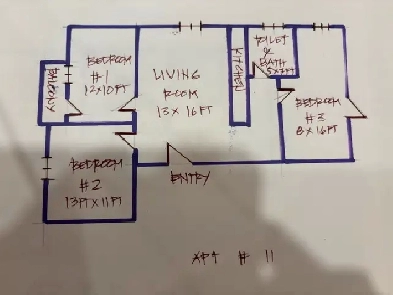 BEDROOM
#1
12X10FT
BALCONY
LIVING
ROOM
13X16FT
KITCHEN
TOILET
&
BATH
5X7FT
BEDROOM
#3
8X16FT
BEDROOM
#2
13FTX11FT
ENTRY
APT # 11